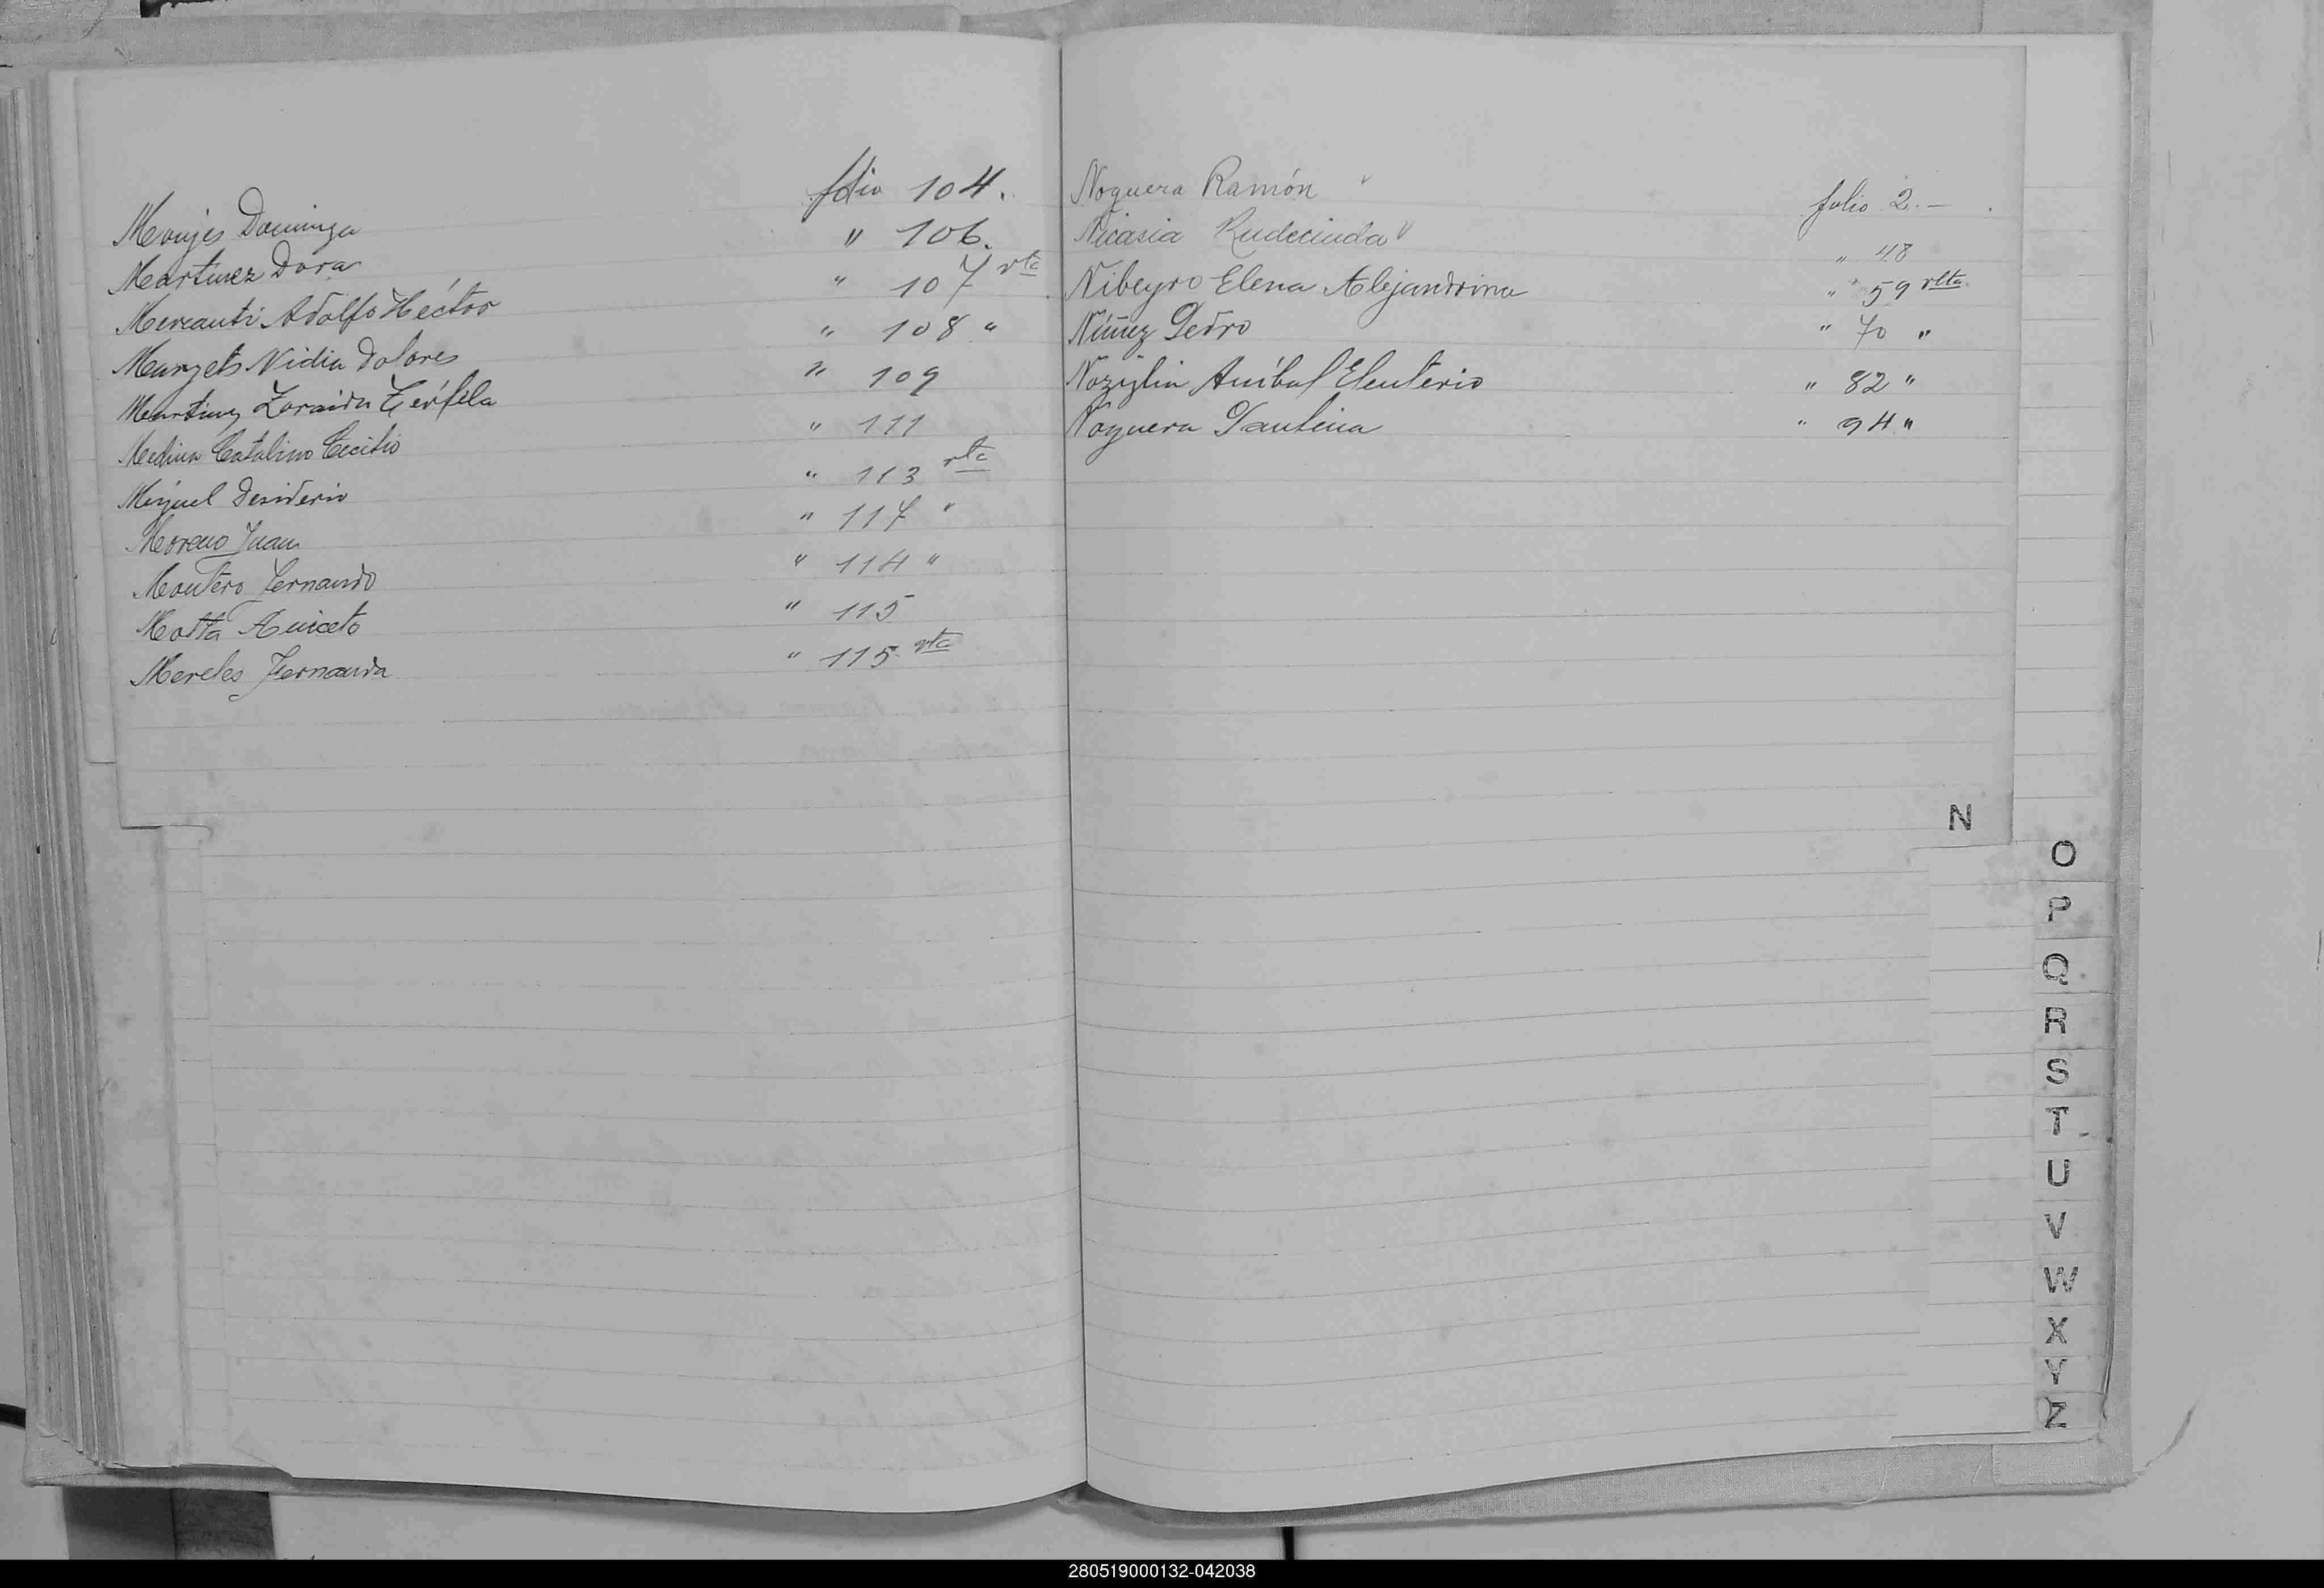 Monjes Dominga folio 104.
Martinez Dora " 106.
Mercanti Adolfo Héctor " 107 vta
Nidia Dolores " 108 "
Martinez Zoraida " 109
Medina Catalino Cecilio " 111
Miguel Desiderio " 113 vta
Moreno Juan " 117 "
Montero Fernando " 114 "
Motta Aniceto " 115
Mereles Fernanda " 115 vta
Noguera Ramón folio 2.-
Nicasia Rudecinda " 48
Nibeyro Elena Alejandrina " 59 vlta
Núñez Pedro " 70 "
Aníbal Eleuterio " 82 "
Noguera Pantina " 94 "
N
O
P
Q
R
S
T
U
V
W
X
Y
Z
280519000132-042038